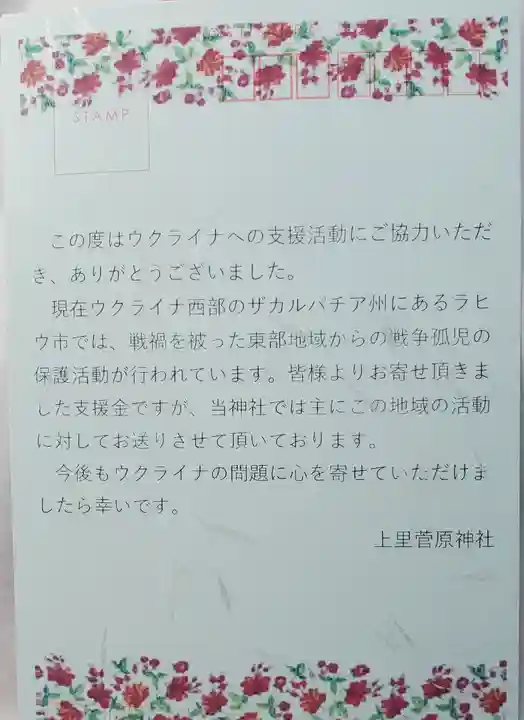 STAMP
この度はウクライナへの支援活動にご協力いただ
き、ありがとうございました。
現在ウクライナ西部のザカルパチア州にあるラヒ
ウ市では、戦禍を被った東部地域からの戦争孤児の
保護活動が行われています。皆様よりお寄せ頂きま
した支援金ですが、当神社では主にこの地域の活動
に対してお送りさせて頂いております。
今後もウクライナの問題に心を寄せていただけま
したら幸いです。
上里菅原神社